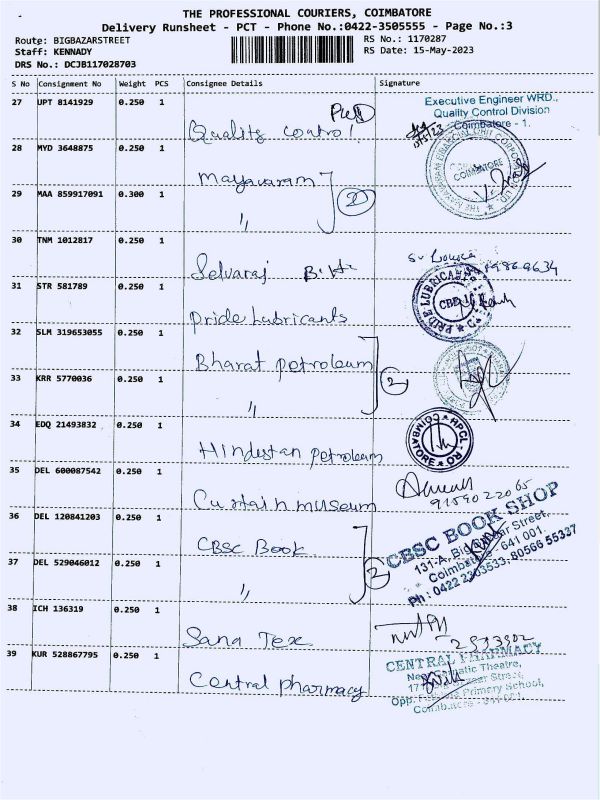 THE PROFESSIONAL COURIERS, COIMBATORE
Delivery Runsheet - PCT - Phone No.:0422-3505555 - Page No.:3
Route: BIGBAZARSTREET RS No.: 1170287
Staff: KENNADY RS Date: 15-May-2023
DRS No.: DCJB117028703
S No Consignment No Weight PCS Consignee Details Signature
27 UPT 8141929 0.250 1 Quality control PWD
Executive Engineer WRD.,
Quality Control Division
Coimbatore - 1.
28 MYD 3648875 0.250 1 Mayavaram
COIMBATORE
29 MAA 859917091 0.300 1 " 2
30 TNM 1012817 0.250 1 Selvaraj
31 STR 581789 0.250 1 Pride Lubricants
PRIDE LUBRICANTS
CBE
32 SLM 319653055 0.250 1 Bharat petroleum
33 KRR 5770036 0.250 1 " 2
34 EDQ 21493832 0.250 1 Hindustan petroleum
HPCL
COIMBATORE R.O.
35 DEL 600087542 0.250 1 Curtain museum
9159022065
36 DEL 120841203 0.250 1 CBSC Book
CBSC BOOK SHOP
131-A, Big Bazaar Street,
Coimbatore - 641 001.
Ph : 0422 2303533, 80566 55337
37 DEL 529046012 0.250 1 " 2
38 ICH 136319 0.250 1 Sana Tex
39 KUR 528867795 0.250 1 Central pharmacy
CENTRAL PHARMACY
Theatre,
Street,
Opp. Primary School,
Coimbatore - 641 001.